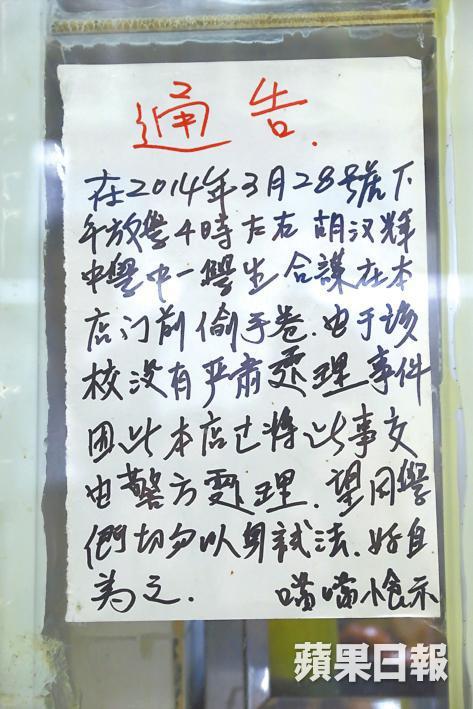 通告.
在2014年3月28號下
午放學4時左右 胡汉輝
中學中一學生合謀在本
店门前偷手卷.由于该
校没有严肃處理事件
因此本店已将此事交
由警方處理.望同學
們切勿以身試法.好自
为之. 喵喵小食示
蘋果日報